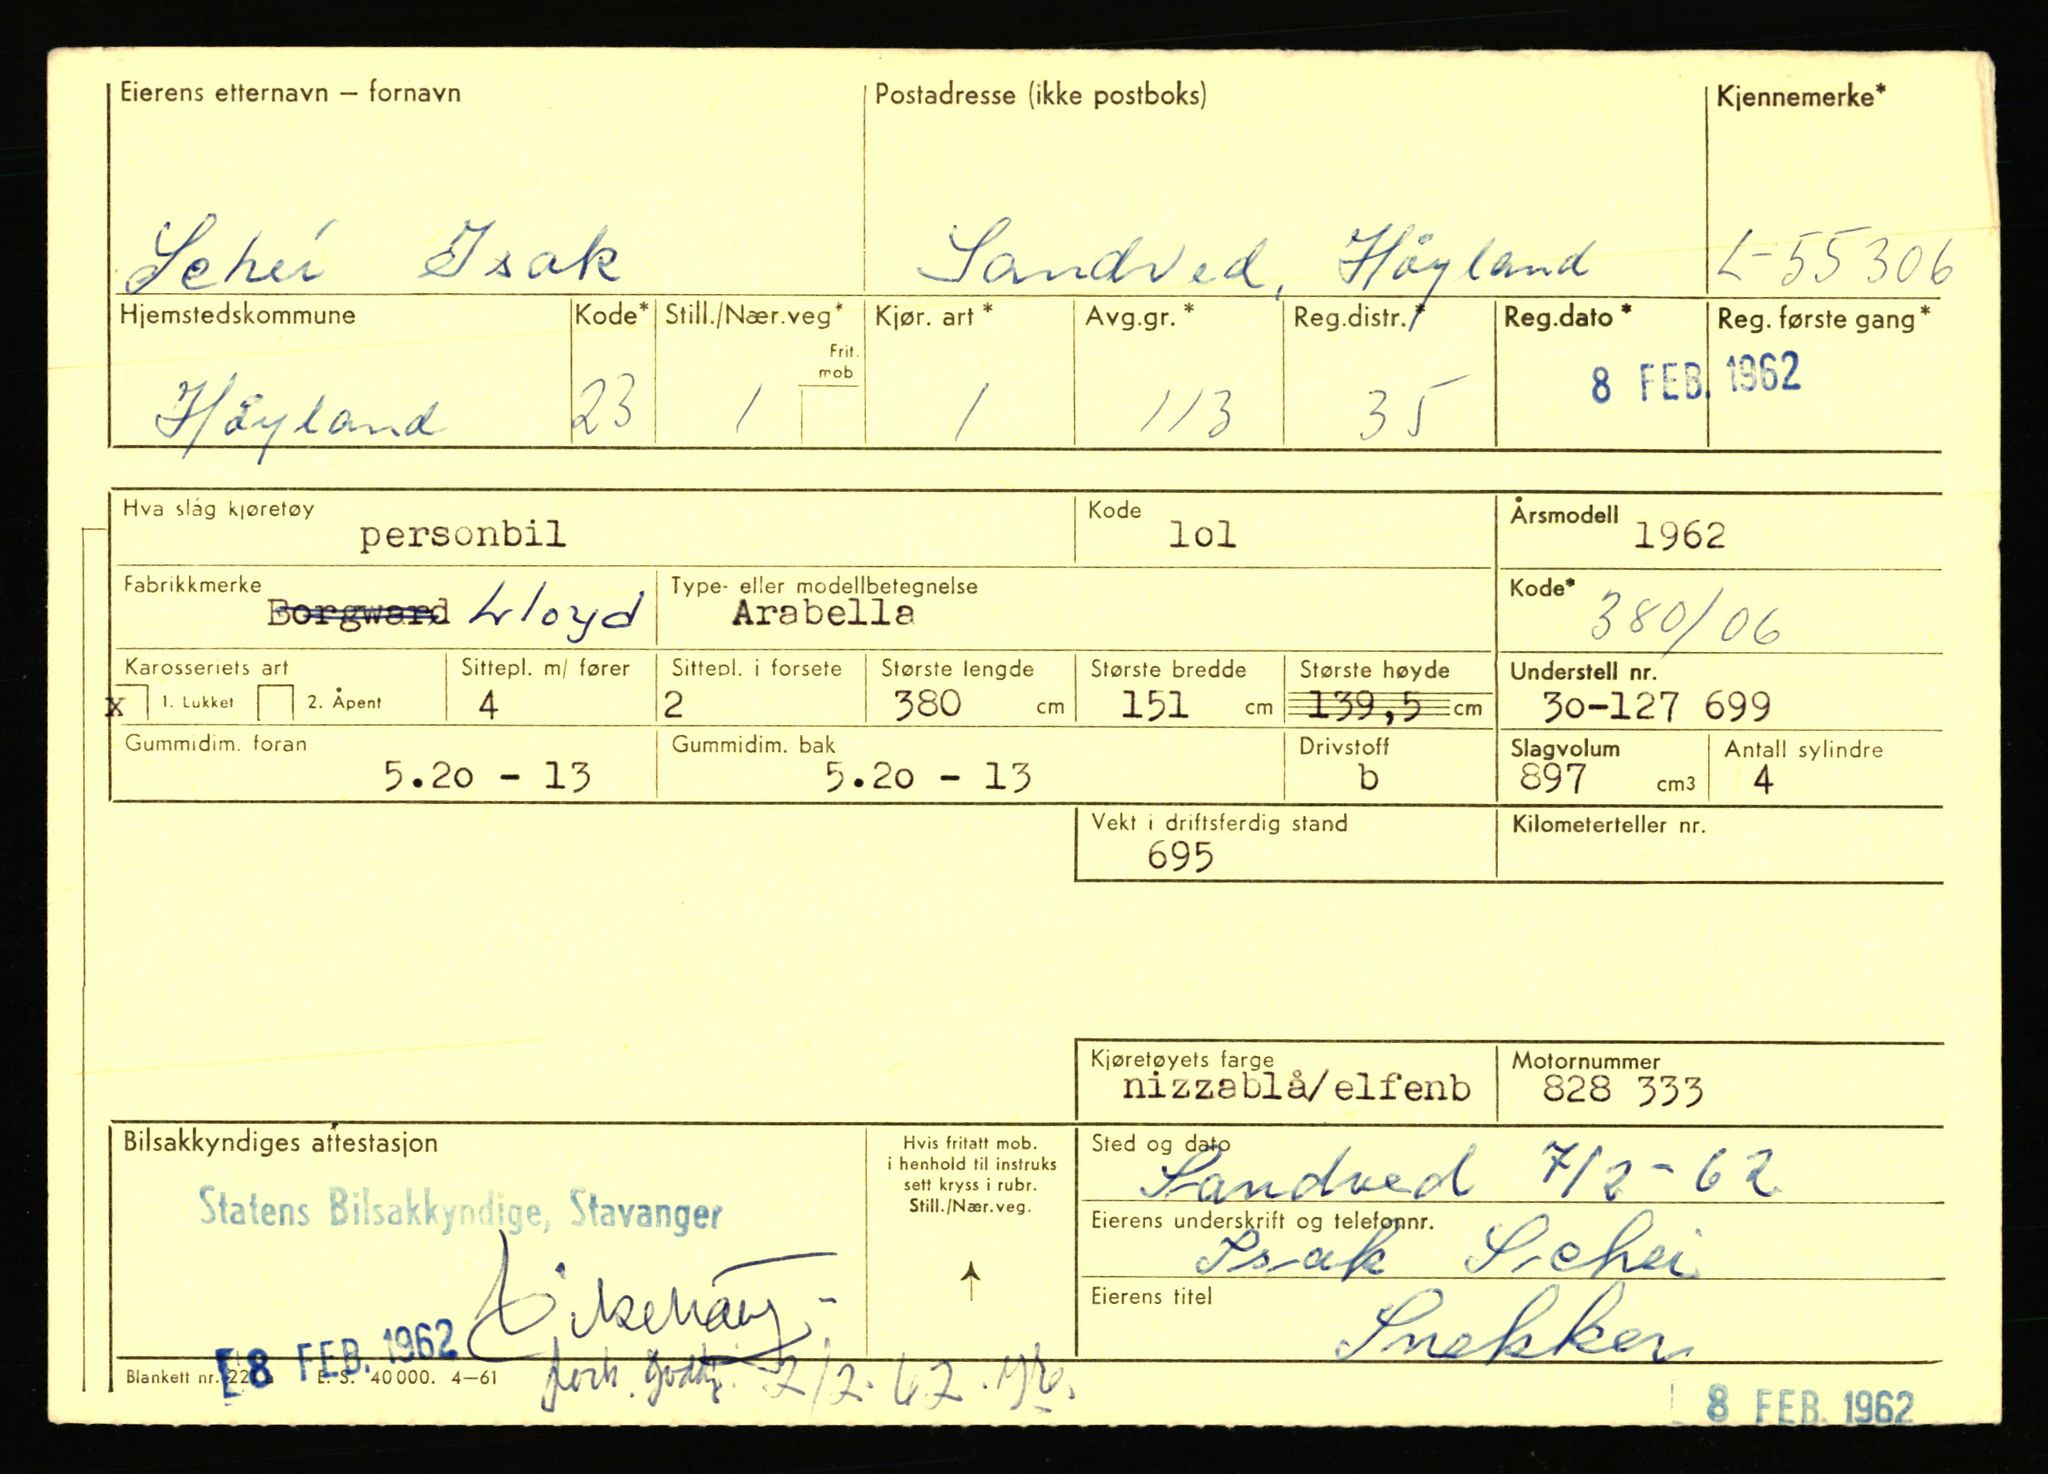 Eierens etternavn – fornavn Postadresse (ikke postboks) Kjennemerke*
Schei Isak Sandved, Höyland L-55306
Hjemstedskommune Kode* Still./Nær.veg* Kjør. art* Avg.gr.* Reg.distr.* Reg.dato* Reg. første gang*
Frit.
mob
Höyland 23 1 1 113 35 8 FEB. 1962
Hva slåg kjøretøy Kode Årsmodell
personbil lol 1962
Fabrikkmerke Type- eller modellbetegnelse Kode*
Borgward Lloyd Arabella 380/06
Karosseriets art Sittepl. m/ fører Sittepl. i forsete Største lengde Største bredde Største høyde Understell nr.
x 1. Lukket 2. Åpent 4 2 380 cm 151 cm 139,5 cm 3o-127 699
Gummidim. foran Gummidim. bak Drivstoff Slagvolum Antall sylindre
5.2o - 13 5.2o - 13 b 897 cm3 4
Vekt i driftsferdig stand Kilometerteller nr.
695
Kjøretøyets farge Motornummer
nizzablå/elfenb 828 333
Bilsakkyndiges attestasjon Hvis fritatt mob. Sted og dato
i henhold til instruks
sett kryss i rubr.
Still./Nær.veg.
Sandved 7/2-62
Statens Bilsakkyndige, Stavanger
Eierens underskrift og telefonnr.
Isak Schei
Eierens titel
Snekker
8 FEB. 1962
Blankett nr. E. S. 40 000. 4–61
2/2-62
8 FEB. 1962